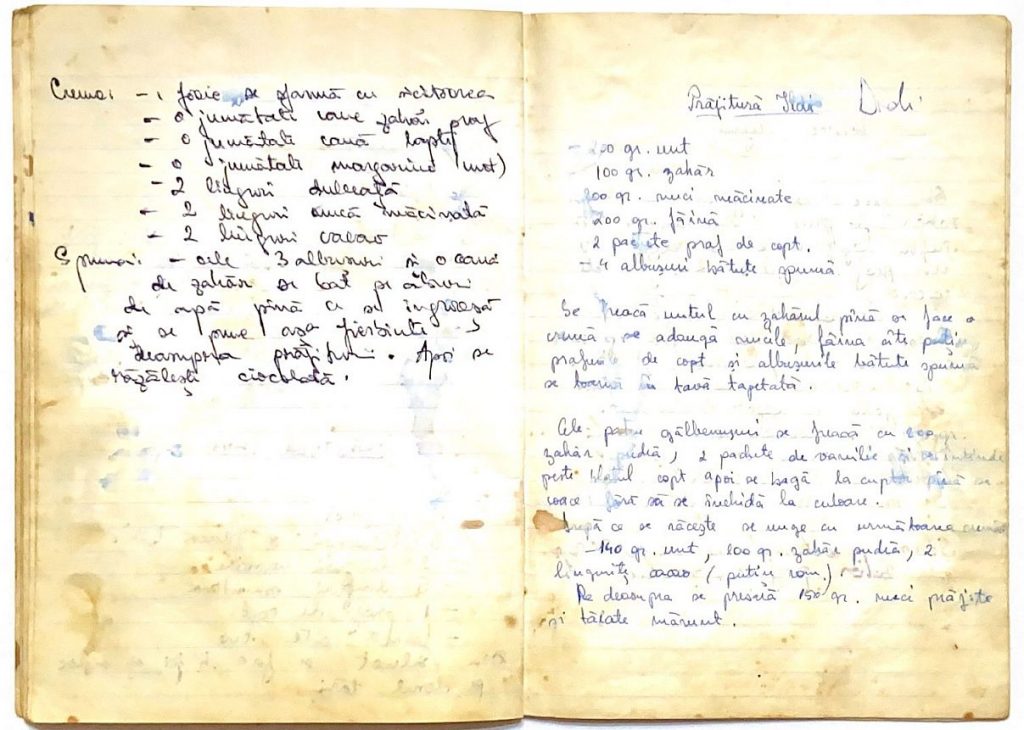 Crema: - 1 foaie se sfarmă cu răcitoarea
- o jumătati cane zahăr praf
- o jumătati cană lapte
- o jumătati margarină (unt)
- 2 linguri dulceață
- 2 linguri nucă măcinată
- 2 linguri cacao
Spuma: - cele 3 albusuri si o cană
de zahăr se bat pe aburi
de apă pînă ce se îngroașă
si se pune așa fierbinte
deasupra prăjituri. Apoi se
răzălești ciocolată.
Prăjitură Ildi Didi
- 200 gr. unt
- 100 gr. zahăr
200 gr. nuci măcinate
- 200 gr. făină
2 pachete praf de copt.
- 4 albușuri bătute spumă
Se freacă untul cu zahărul pînă se face o
cremă, se adaugă nucile, făina cîte puțin
prafurile de copt si albușurile bătute spumă
se toarnă în tavă tapetată.
Cele patru gălbenușuri se freacă cu 200 gr.
zahăr pudră, 2 pachete de vanilie și se întinde
peste blatul copt apoi se bagă la cuptor pînă se
coace fără să se închidă la culoare.
După ce se răcește se unge cu următoarea cremă
- 140 gr. unt, 100 gr. zahăr pudră, 2
lingurițe cacao (puțin rom.).
Pe deasupra se presară 150 gr. nuci prăjite
și tăiate mărunt.